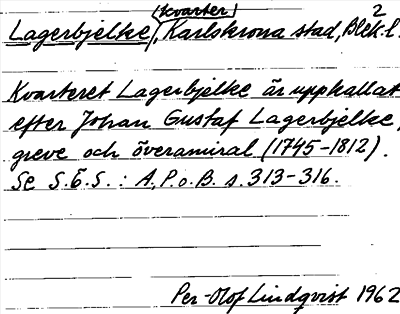 (kvarter) 2
Lagerbjelke, Karlskrona stad, Blek.l.
Kvarteret Lagerbjelke är uppkallat
efter Johan Gustaf Lagerbjelke,
greve och överamiral (1745-1812).
Se S.Ö.S. : A, P. o. B. s. 313-316.
Per-Olof Lindqvist 1962